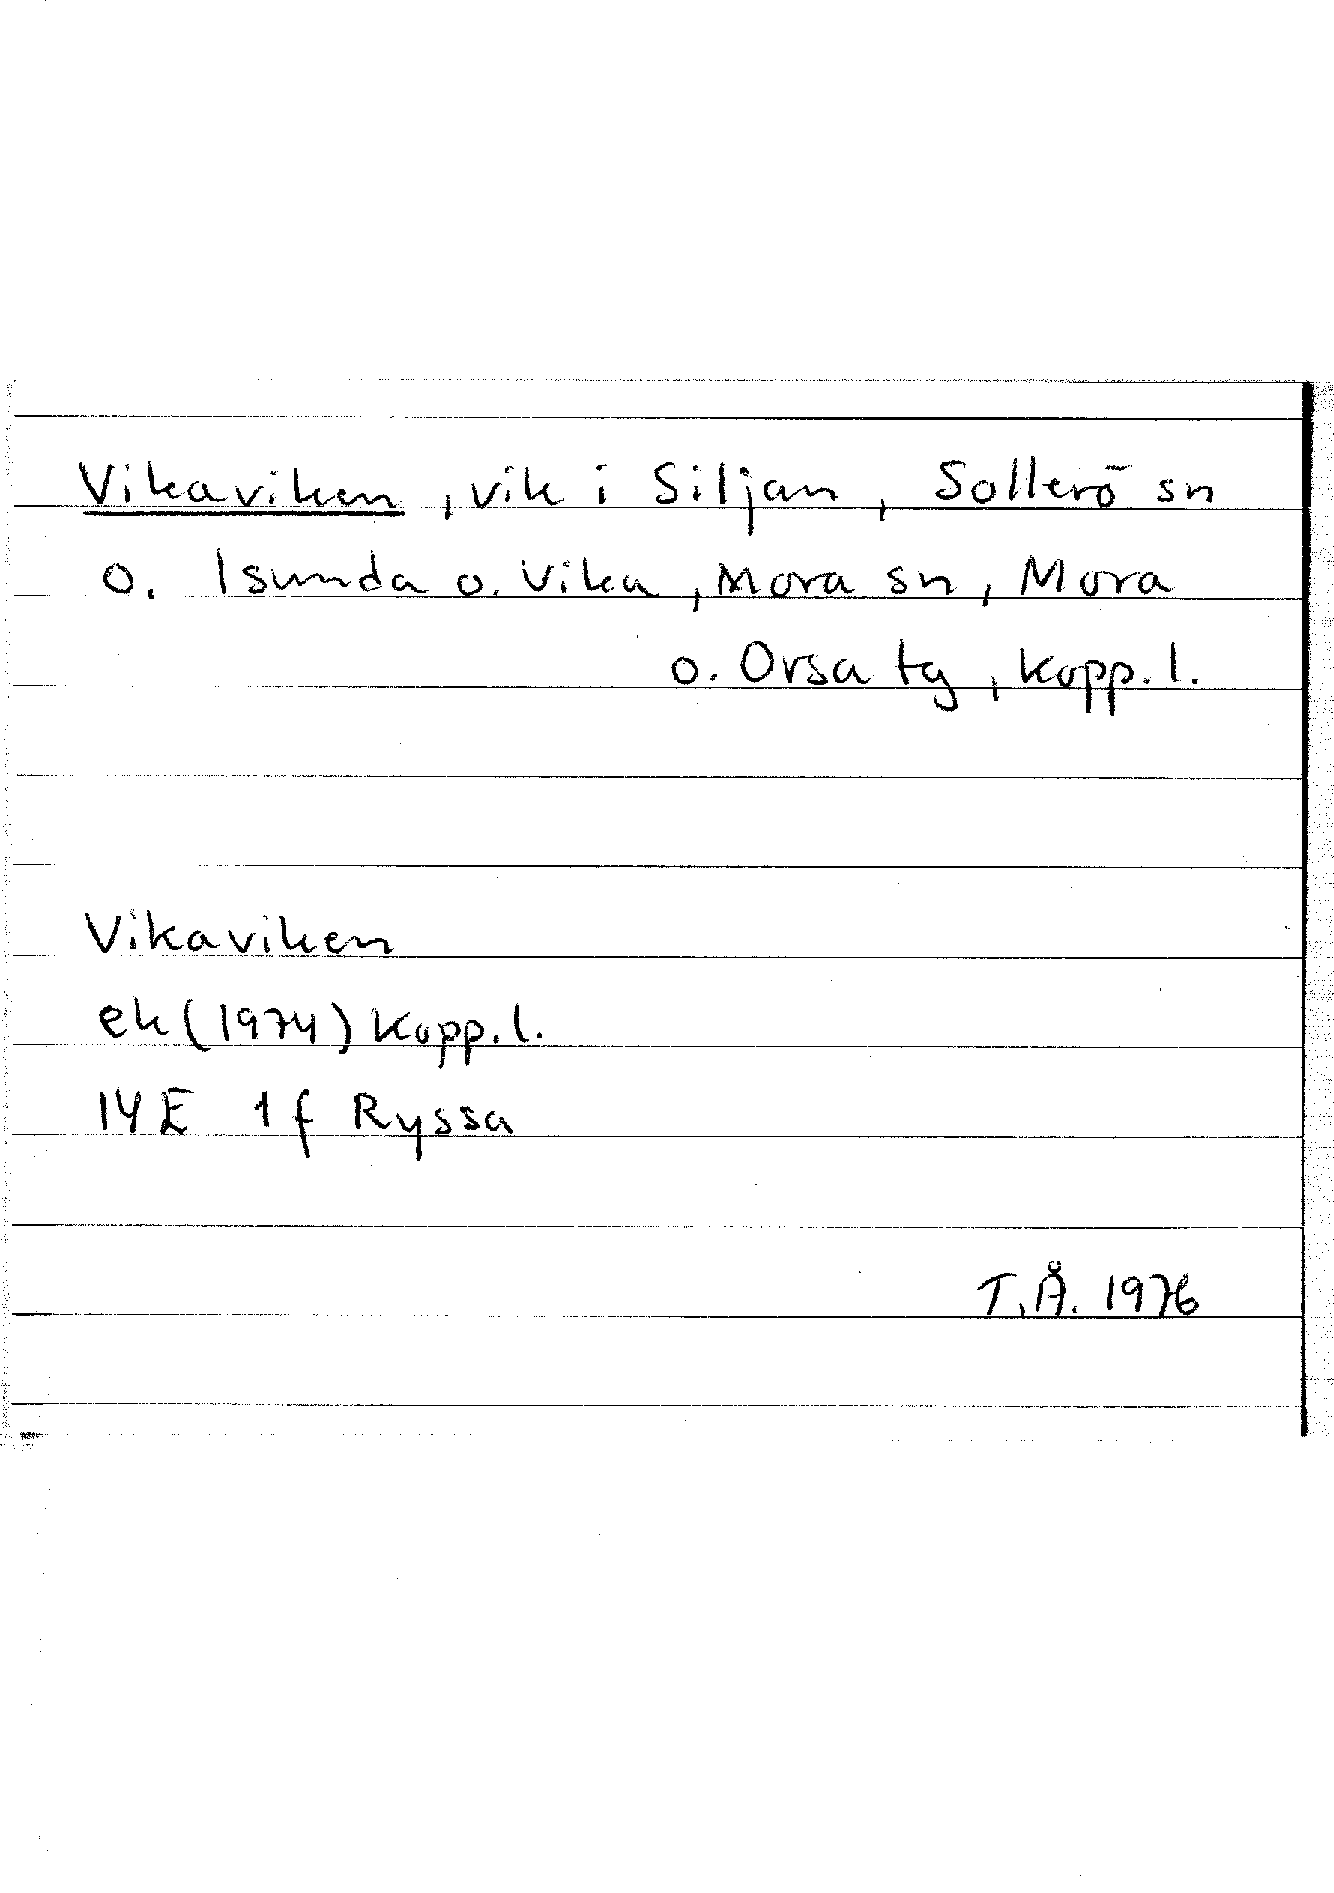 Vikaviken, vik i Siljan, Sollerö sn
o. Isunda o. Vika, Mora sn, Mora
o. Orsa tg, Kopp. l.
Vikaviken
ek (1974) Kopp. l.
14 E 1 f Ryssa
T.Å. 1976